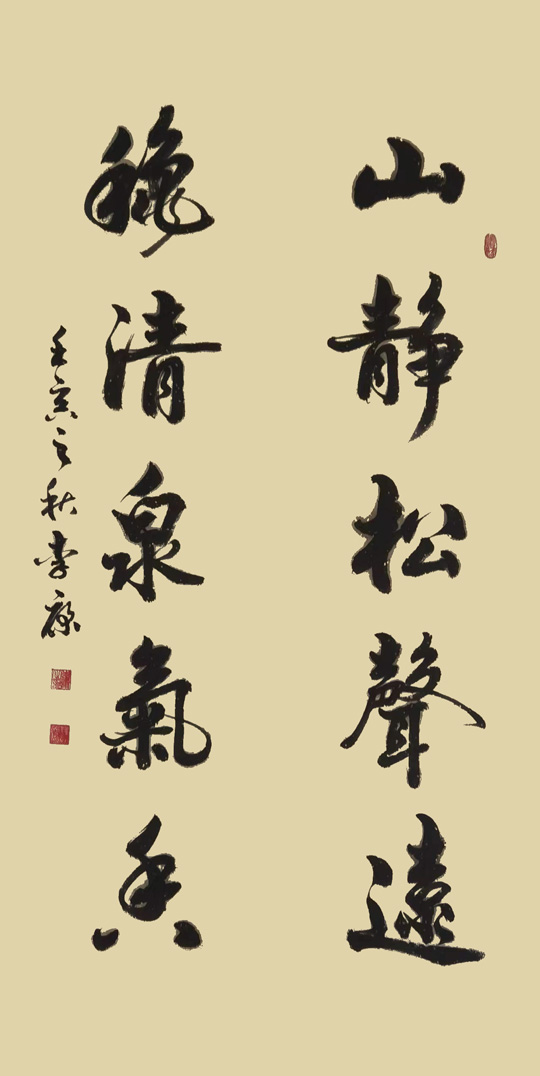 山静松聲遠
穐清泉氣香
壬寅之秋李